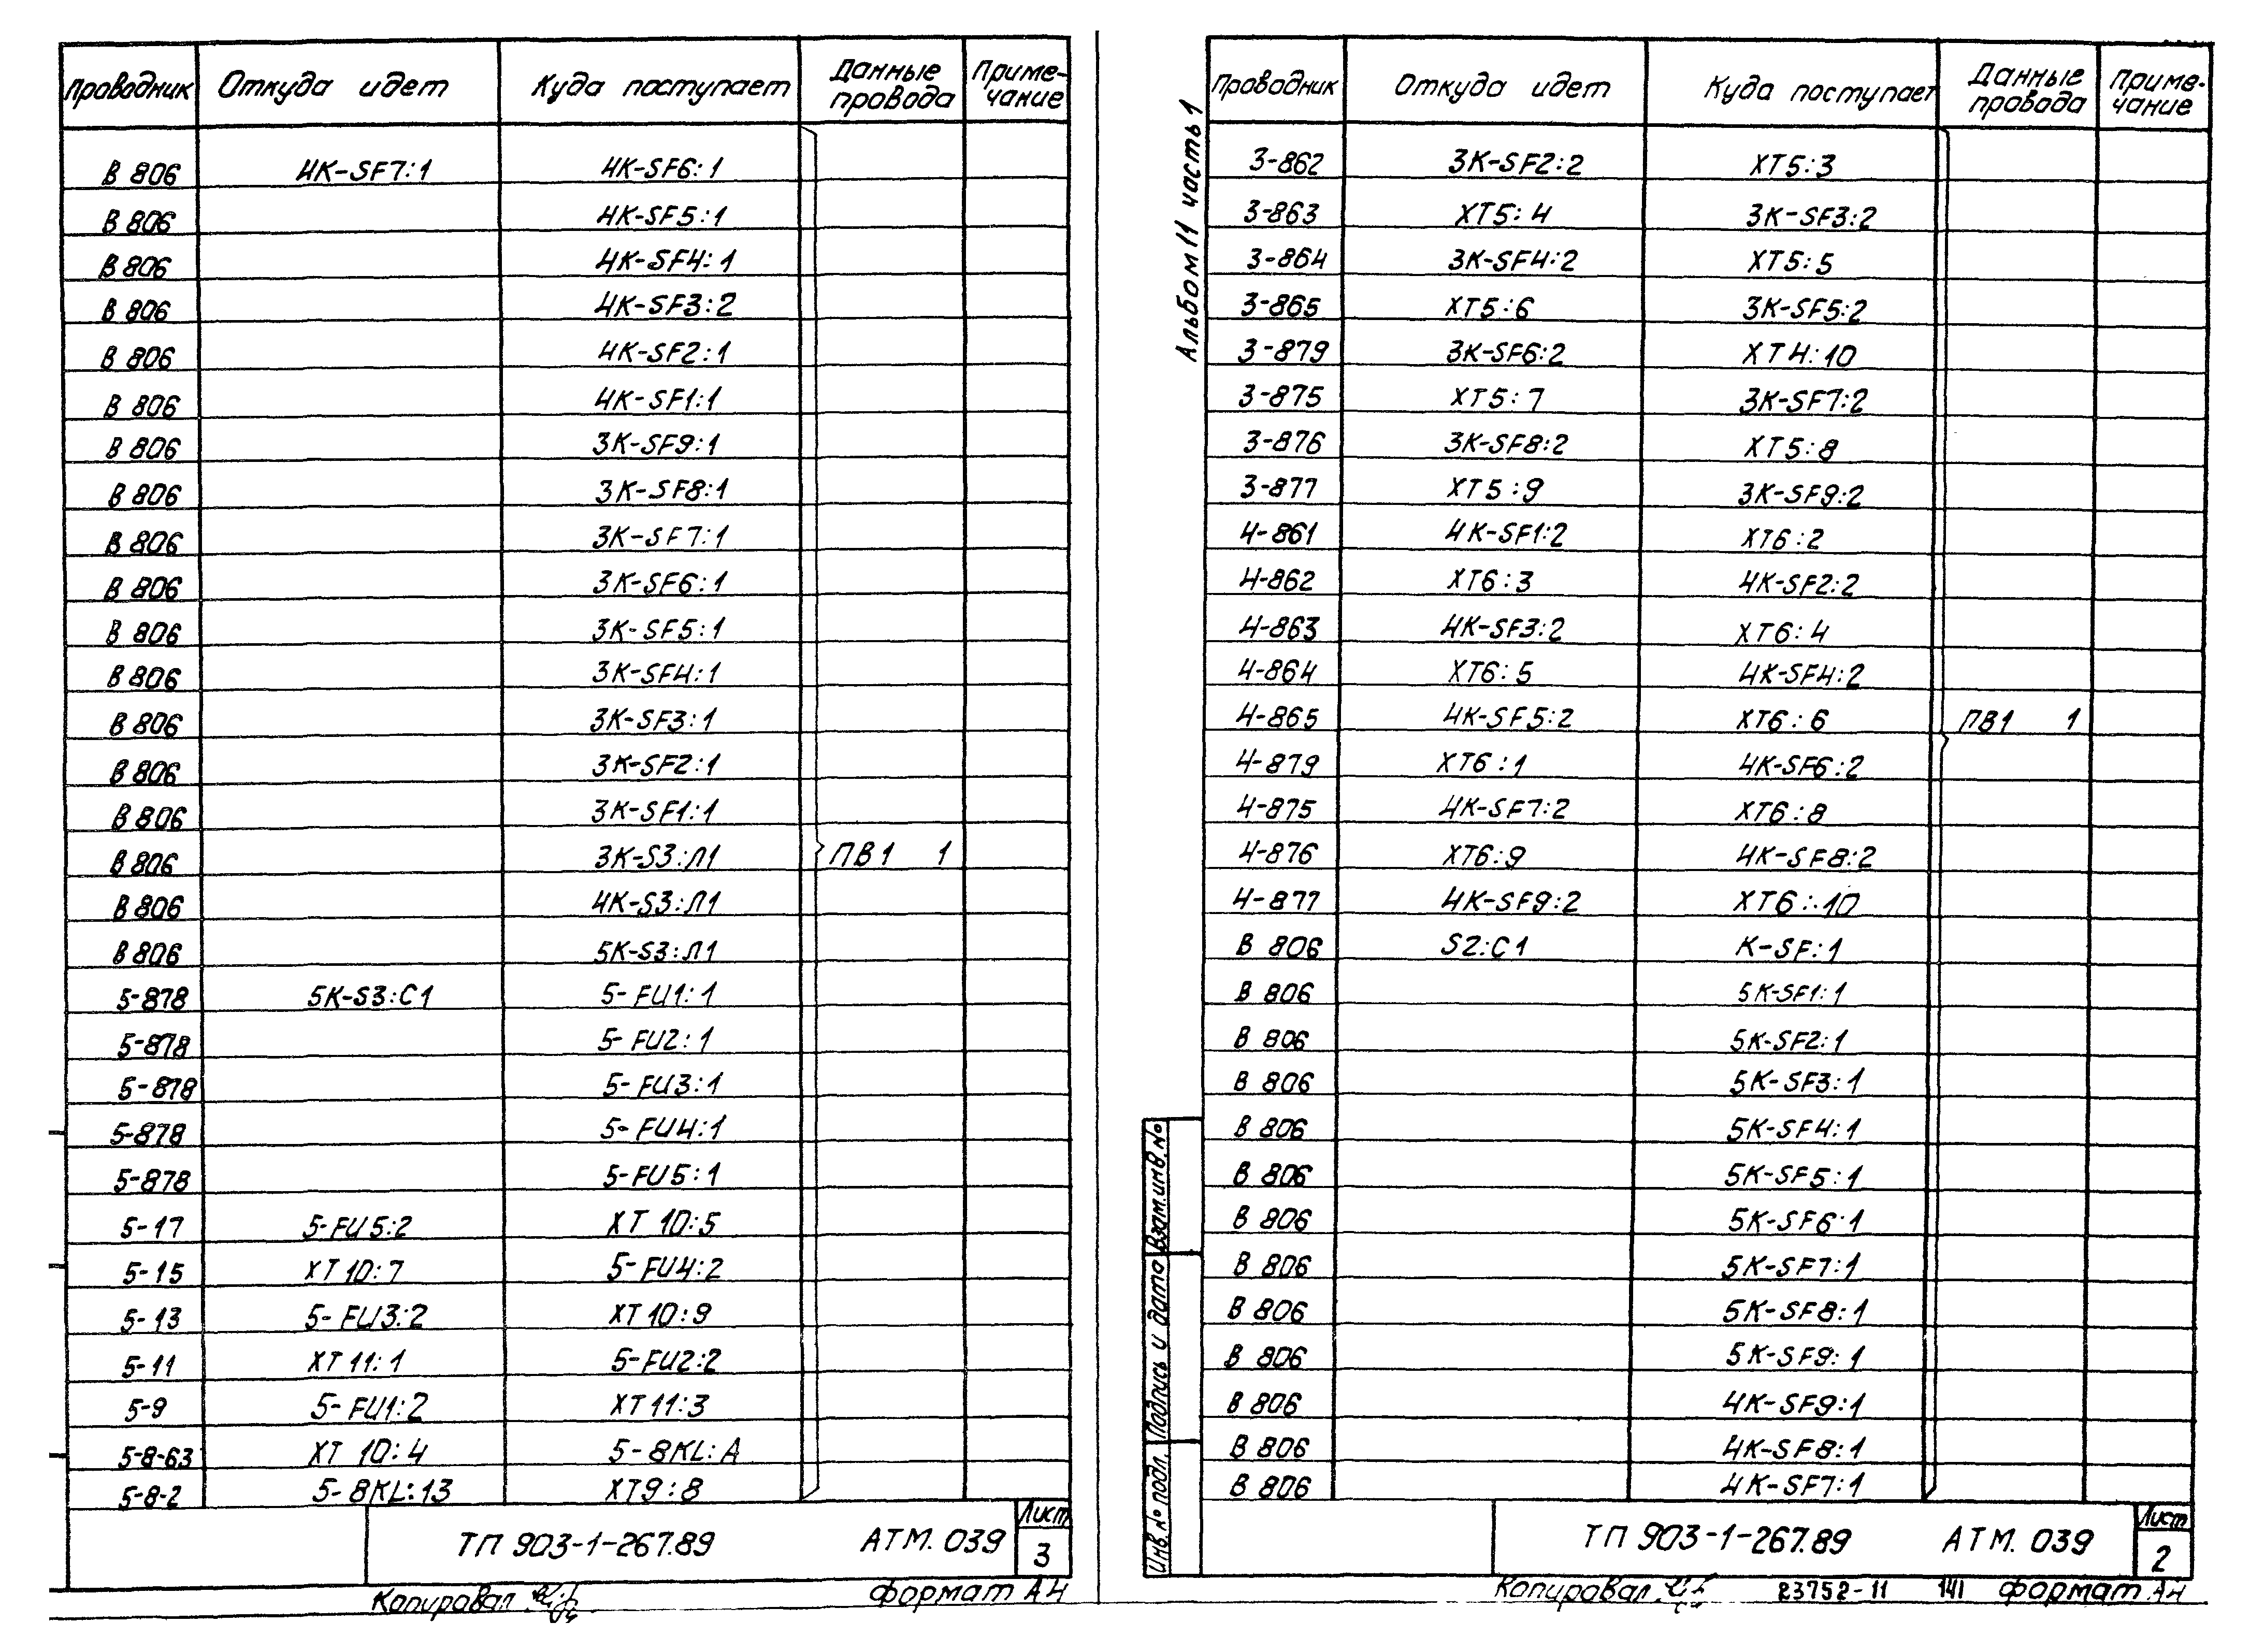 Проводник Откуда идет Куда поступает Данные провода Примечание
В 806 4К-SF7:1 4К-SF6:1
В 806 4К-SF5:1
В 806 4К-SF4:1
В 806 4К-SF3:2
В 806 4К-SF2:1
В 806 4К-SF1:1
В 806 3К-SF9:1
В 806 3К-SF8:1
В 806 3К-SF7:1
В 806 3К-SF6:1
В 806 3К-SF5:1
В 806 3К-SF4:1
В 806 3К-SF3:1
В 806 3К-SF2:1
В 806 3К-SF1:1
В 806 3К-S3:Л1 ПВ1 1
В 806 4К-S3:Л1
В 806 5К-S3:Л1
5-878 5К-S3:С1 5-FU1:1
5-878 5-FU2:1
5-878 5-FU3:1
5-878 5-FU4:1
5-878 5-FU5:1
5-17 5-FU5:2 ХТ10:5
5-15 ХТ10:7 5-FU4:2
5-13 5-FU3:2 ХТ10:9
5-11 ХТ11:1 5-FU2:2
5-9 5-FU1:2 ХТ11:3
5-8-63 ХТ10:4 5-8KL:А
5-8-2 5-8KL:13 ХТ9:8
ТП 903-1-267.89 АТМ.039 Лист 3
Копировал Формат А4
Альбом 11 часть 1
Проводник Откуда идет Куда поступает Данные провода Примечание
3-862 3К-SF2:2 ХТ5:3
3-863 ХТ5:4 3К-SF3:2
3-864 3К-SF4:2 ХТ5:5
3-865 ХТ5:6 3К-SF5:2
3-879 3К-SF6:2 ХТ4:10
3-875 ХТ5:7 3К-SF7:2
3-876 3К-SF8:2 ХТ5:8
3-877 ХТ5:9 3К-SF9:2
4-861 4К-SF1:2 ХТ6:2
4-862 ХТ6:3 4К-SF2:2
4-863 4К-SF3:2 ХТ6:4
4-864 ХТ6:5 4К-SF4:2
4-865 4К-SF5:2 ХТ6:6 ПВ1 1
4-879 ХТ6:1 4К-SF6:2
4-875 4К-SF7:2 ХТ6:8
4-876 ХТ6:9 4К-SF8:2
4-877 4К-SF9:2 ХТ6:10
В 806 S2:С1 К-SF:1
В 806 5К-SF1:1
В 806 5К-SF2:1
В 806 5К-SF3:1
В 806 5К-SF4:1
В 806 5К-SF5:1
В 806 5К-SF6:1
В 806 5К-SF7:1
В 806 5К-SF8:1
В 806 5К-SF9:1
В 806 4К-SF9:1
В 806 4К-SF8:1
В 806 4К-SF7:1
Взам.инв.№
Подпись и дата
Инв.№ подл.
ТП 903-1-267.89 АТМ.039 Лист 2
Копировал 23752-11 141 Формат А4